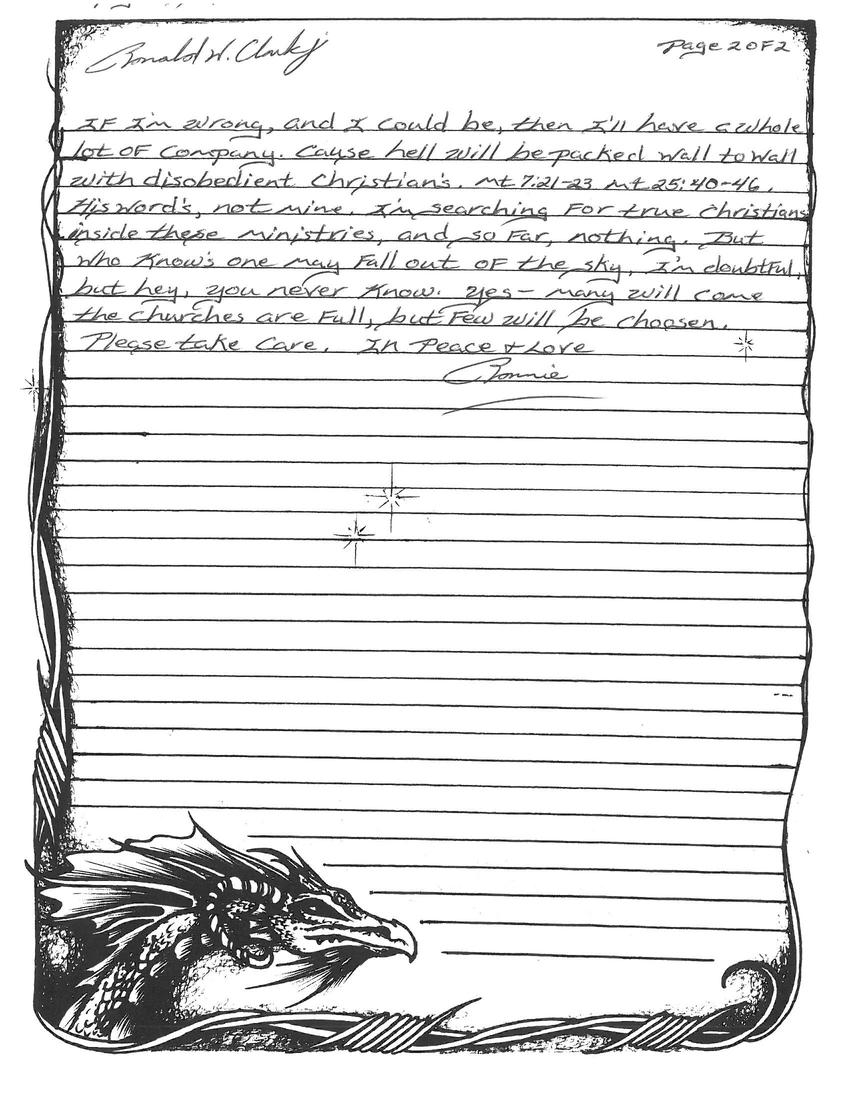 Ronald W. Clark Jr
Page 2 OF 2
IF I'm wrong, and I could be, then I'll have a whole
lot OF Company. Cause hell will be packed wall to wall
with disobedient Christian's. Mt 7:21-23 Mt 25:40-46.
His word's, not mine. I'm searching For true Christians
inside these ministries, and so Far, nothing. But
who Know's one may Fall out OF the sky, I'm doubtful,
but hey, you never Know. Yes- many will come
the Churches are Full, but Few will be choosen.
Please take Care. In Peace & Love
Ronnie